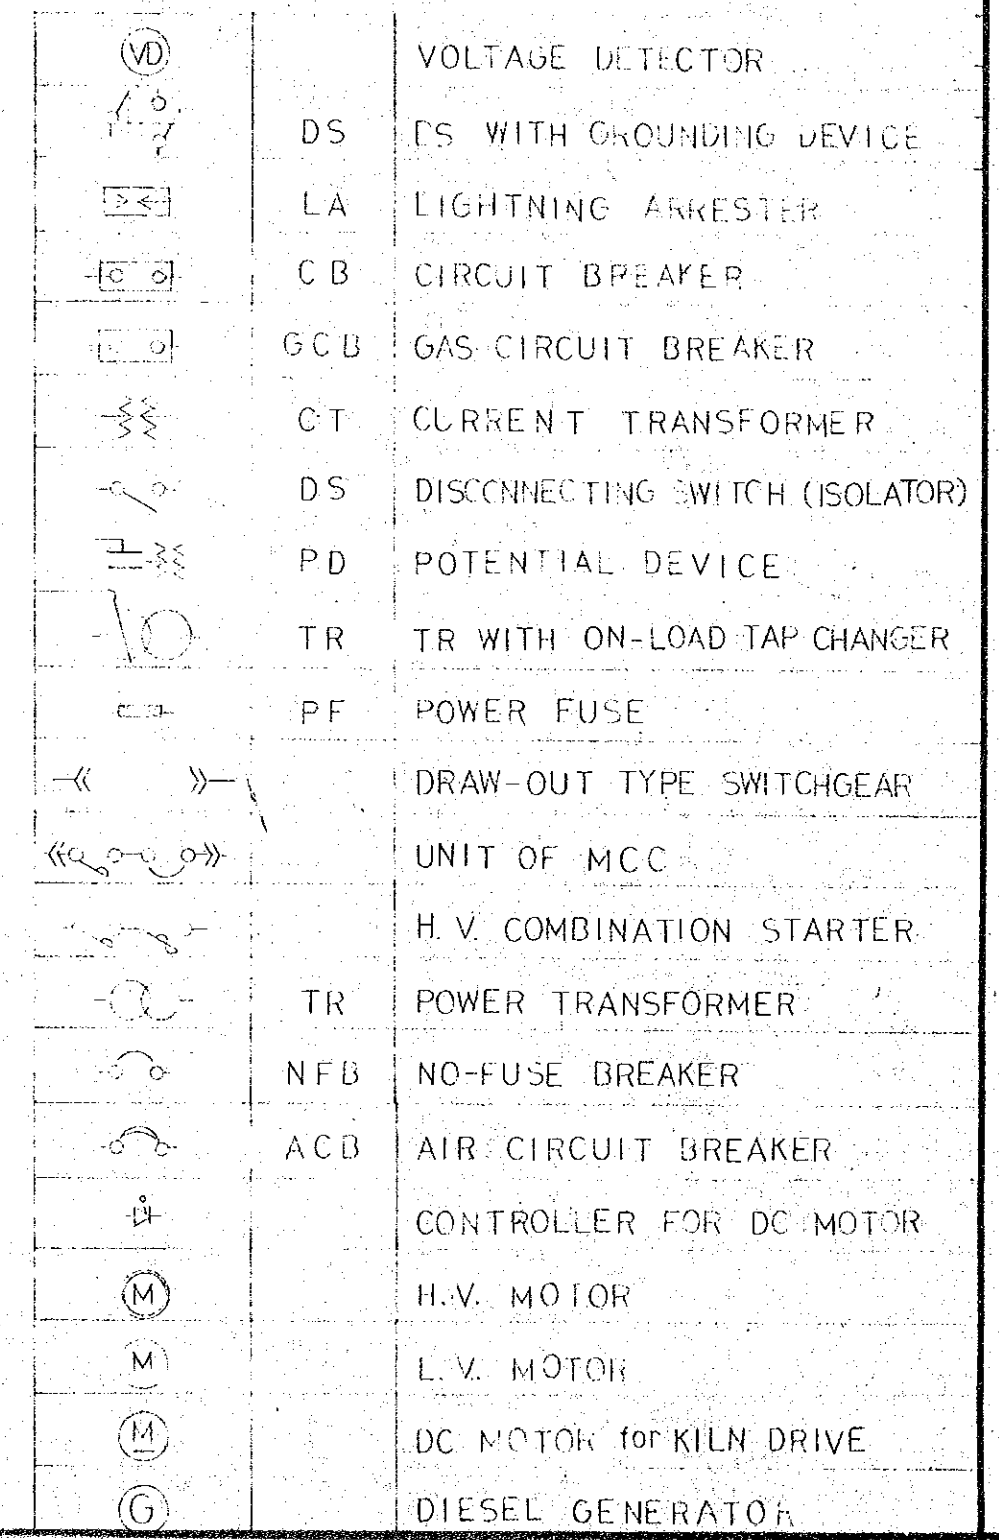 VD VOLTAGE DETECTOR
DS DS WITH GROUNDING DEVICE
LA LIGHTNING ARRESTER
CB CIRCUIT BREAKER
GCB GAS CIRCUIT BREAKER
CT CURRENT TRANSFORMER
DS DISCONNECTING SWITCH (ISOLATOR)
PD POTENTIAL DEVICE
TR TR WITH ON-LOAD TAP CHANGER
PF POWER FUSE
DRAW-OUT TYPE SWITCHGEAR
UNIT OF MCC
H.V. COMBINATION STARTER
TR POWER TRANSFORMER
NFB NO-FUSE BREAKER
ACB AIR CIRCUIT BREAKER
CONTROLLER FOR DC MOTOR
M H.V. MOTOR
M L.V. MOTOR
M DC MOTOR for KILN DRIVE
G DIESEL GENERATOR